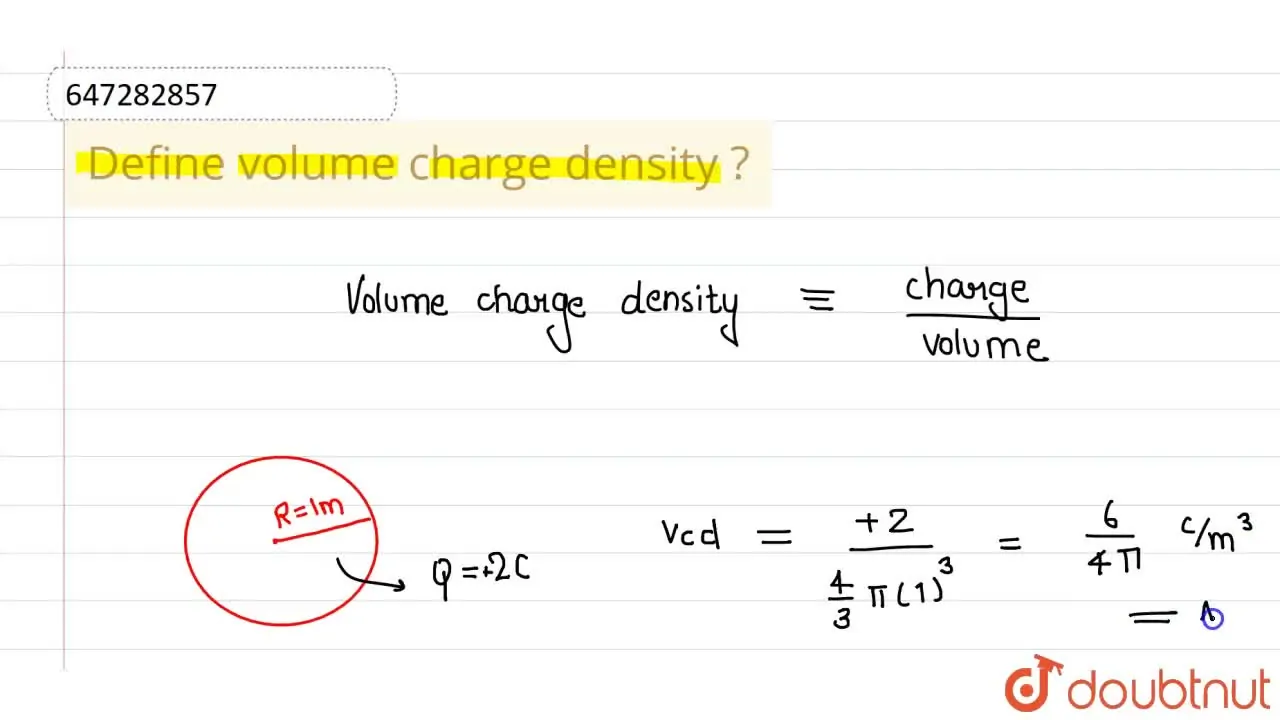 647282857
Define volume charge density ?
Volume charge density ≡ charge / volume
R=1m
Q=+2C
Vcd = +2 / 4/3 π(1)^3 = 6/4π C/m^3
=
doubtnut